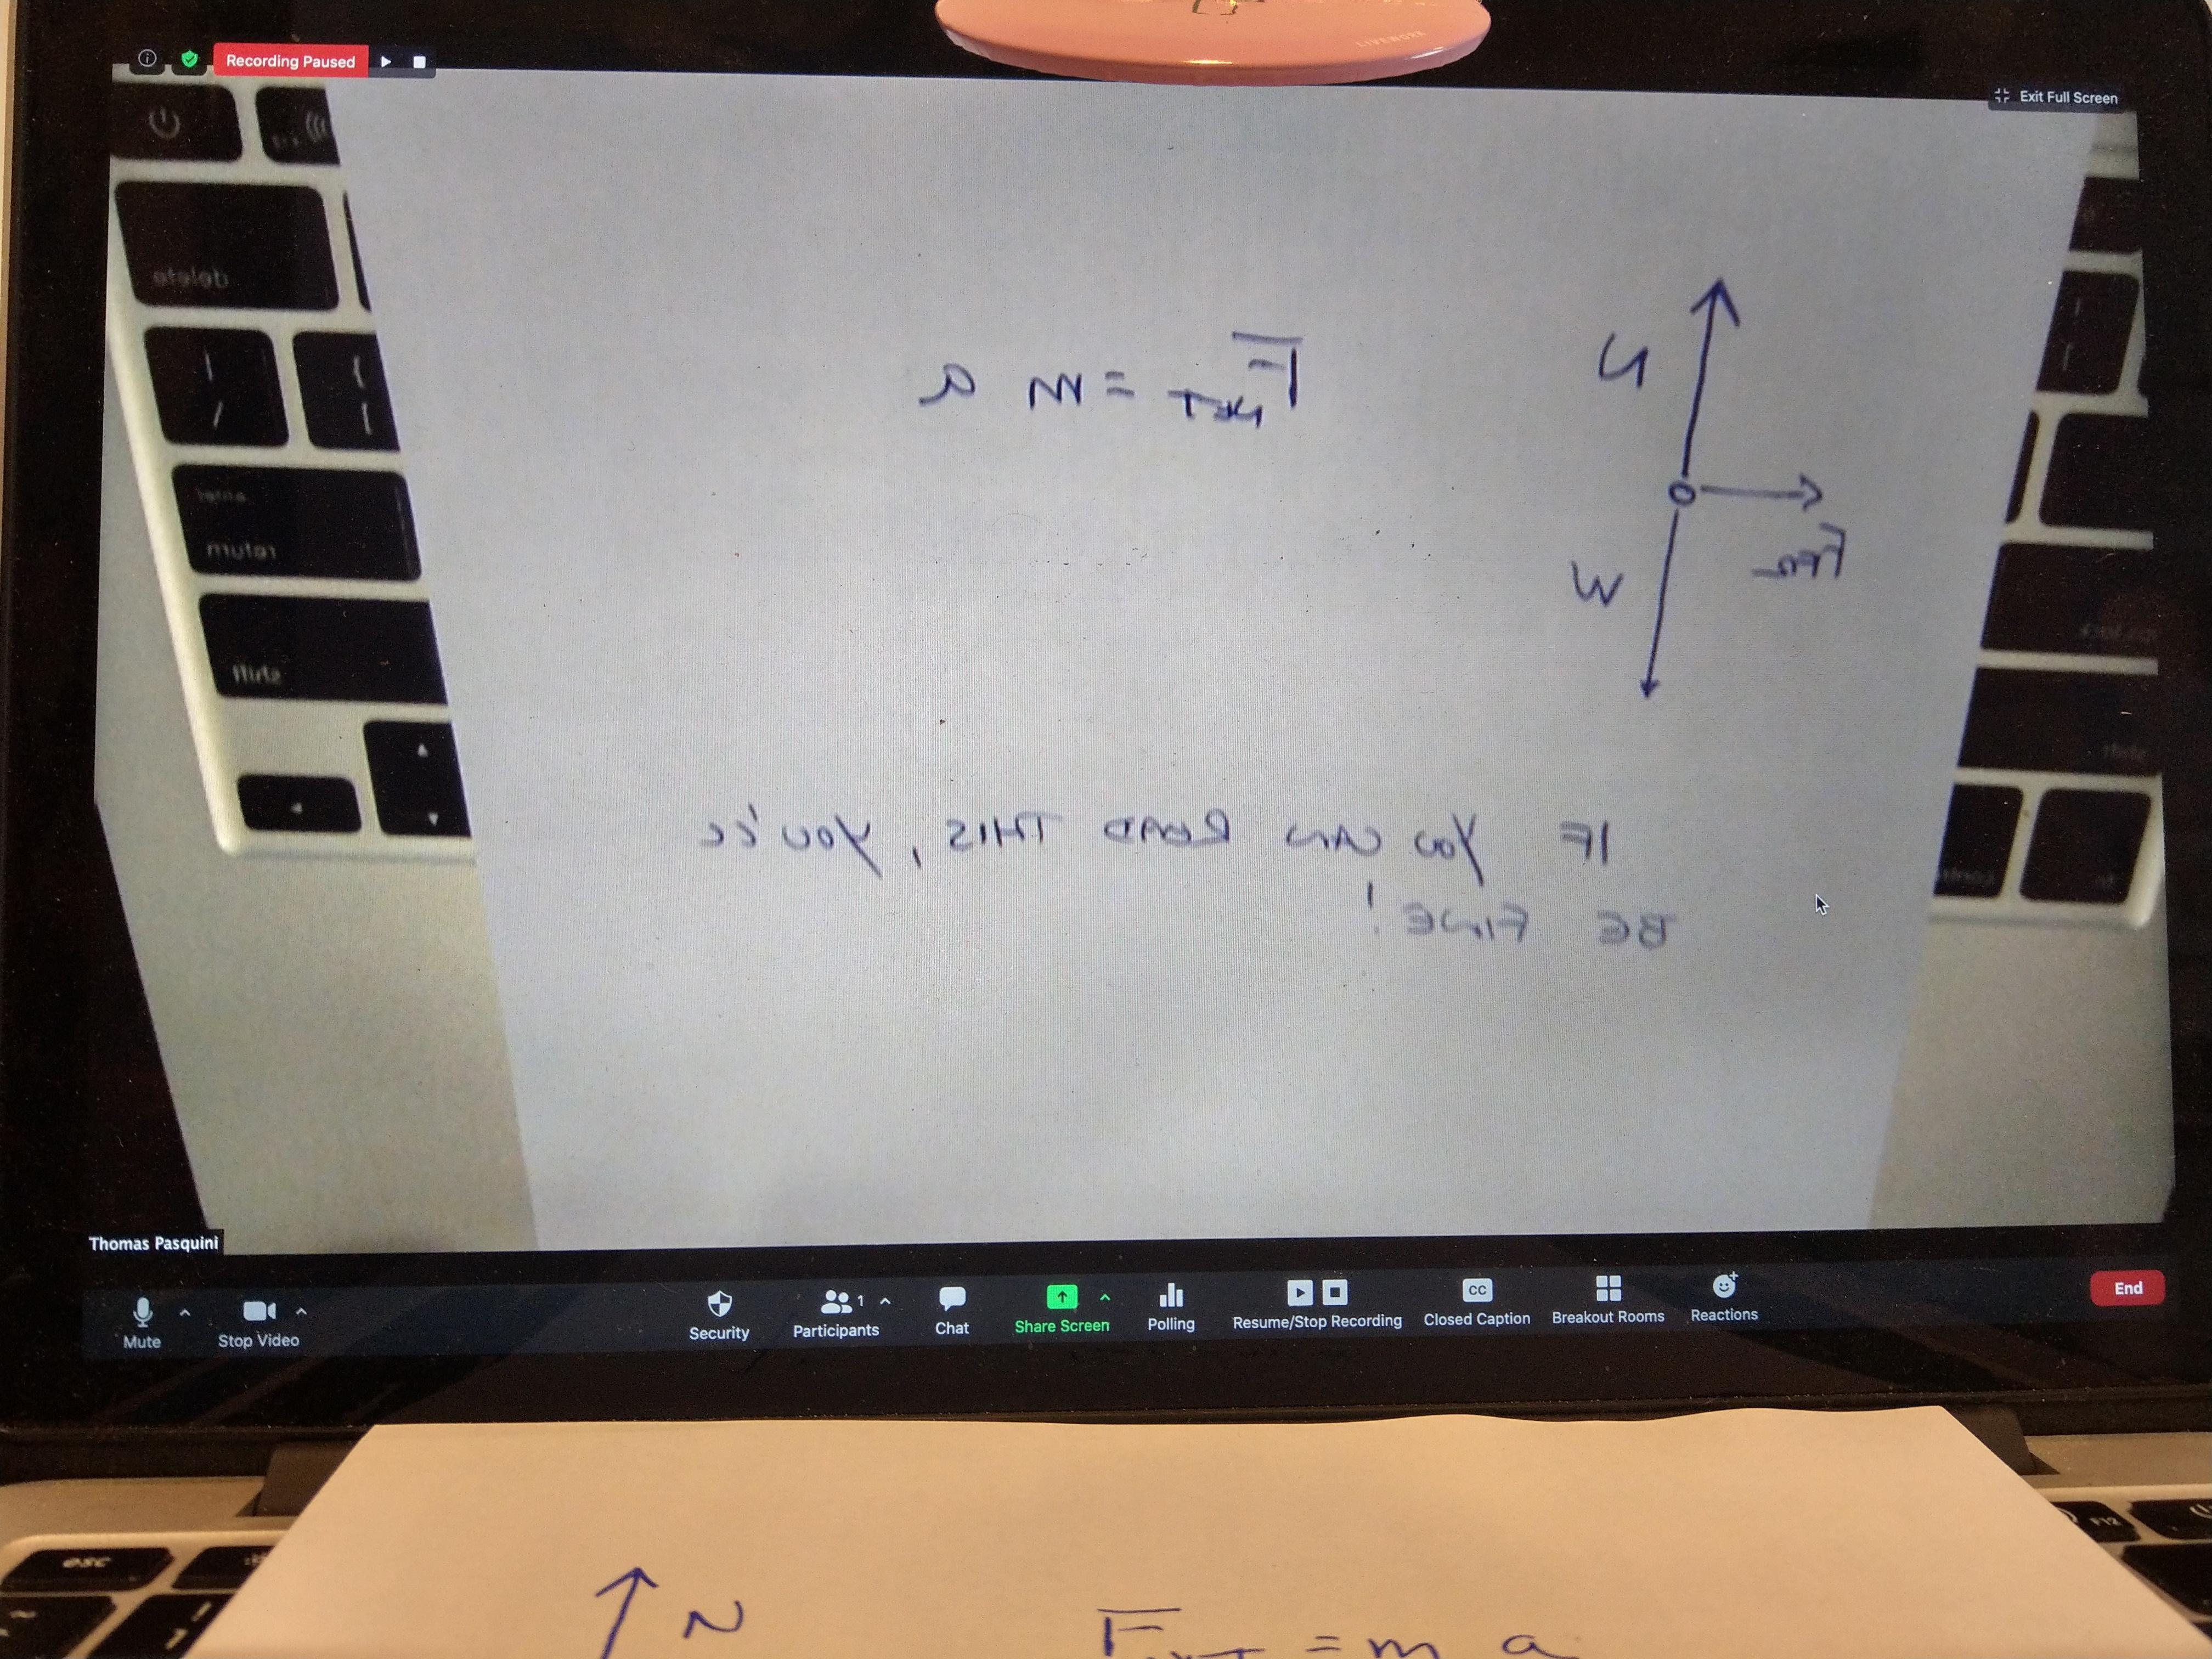 LIVEWORK
Recording Paused
Exit Full Screen
delete
return
shift
F_NET = m a
N
W
F_FR
IF YOU CAN READ THIS, YOU'LL
BE FINE!
Thomas Pasquini
Mute
Stop Video
Security
Participants 1
Chat
Share Screen
Polling
Resume/Stop Recording
CC
Closed Caption
Breakout Rooms
Reactions
End
esc
F12
N
F_NET = m a